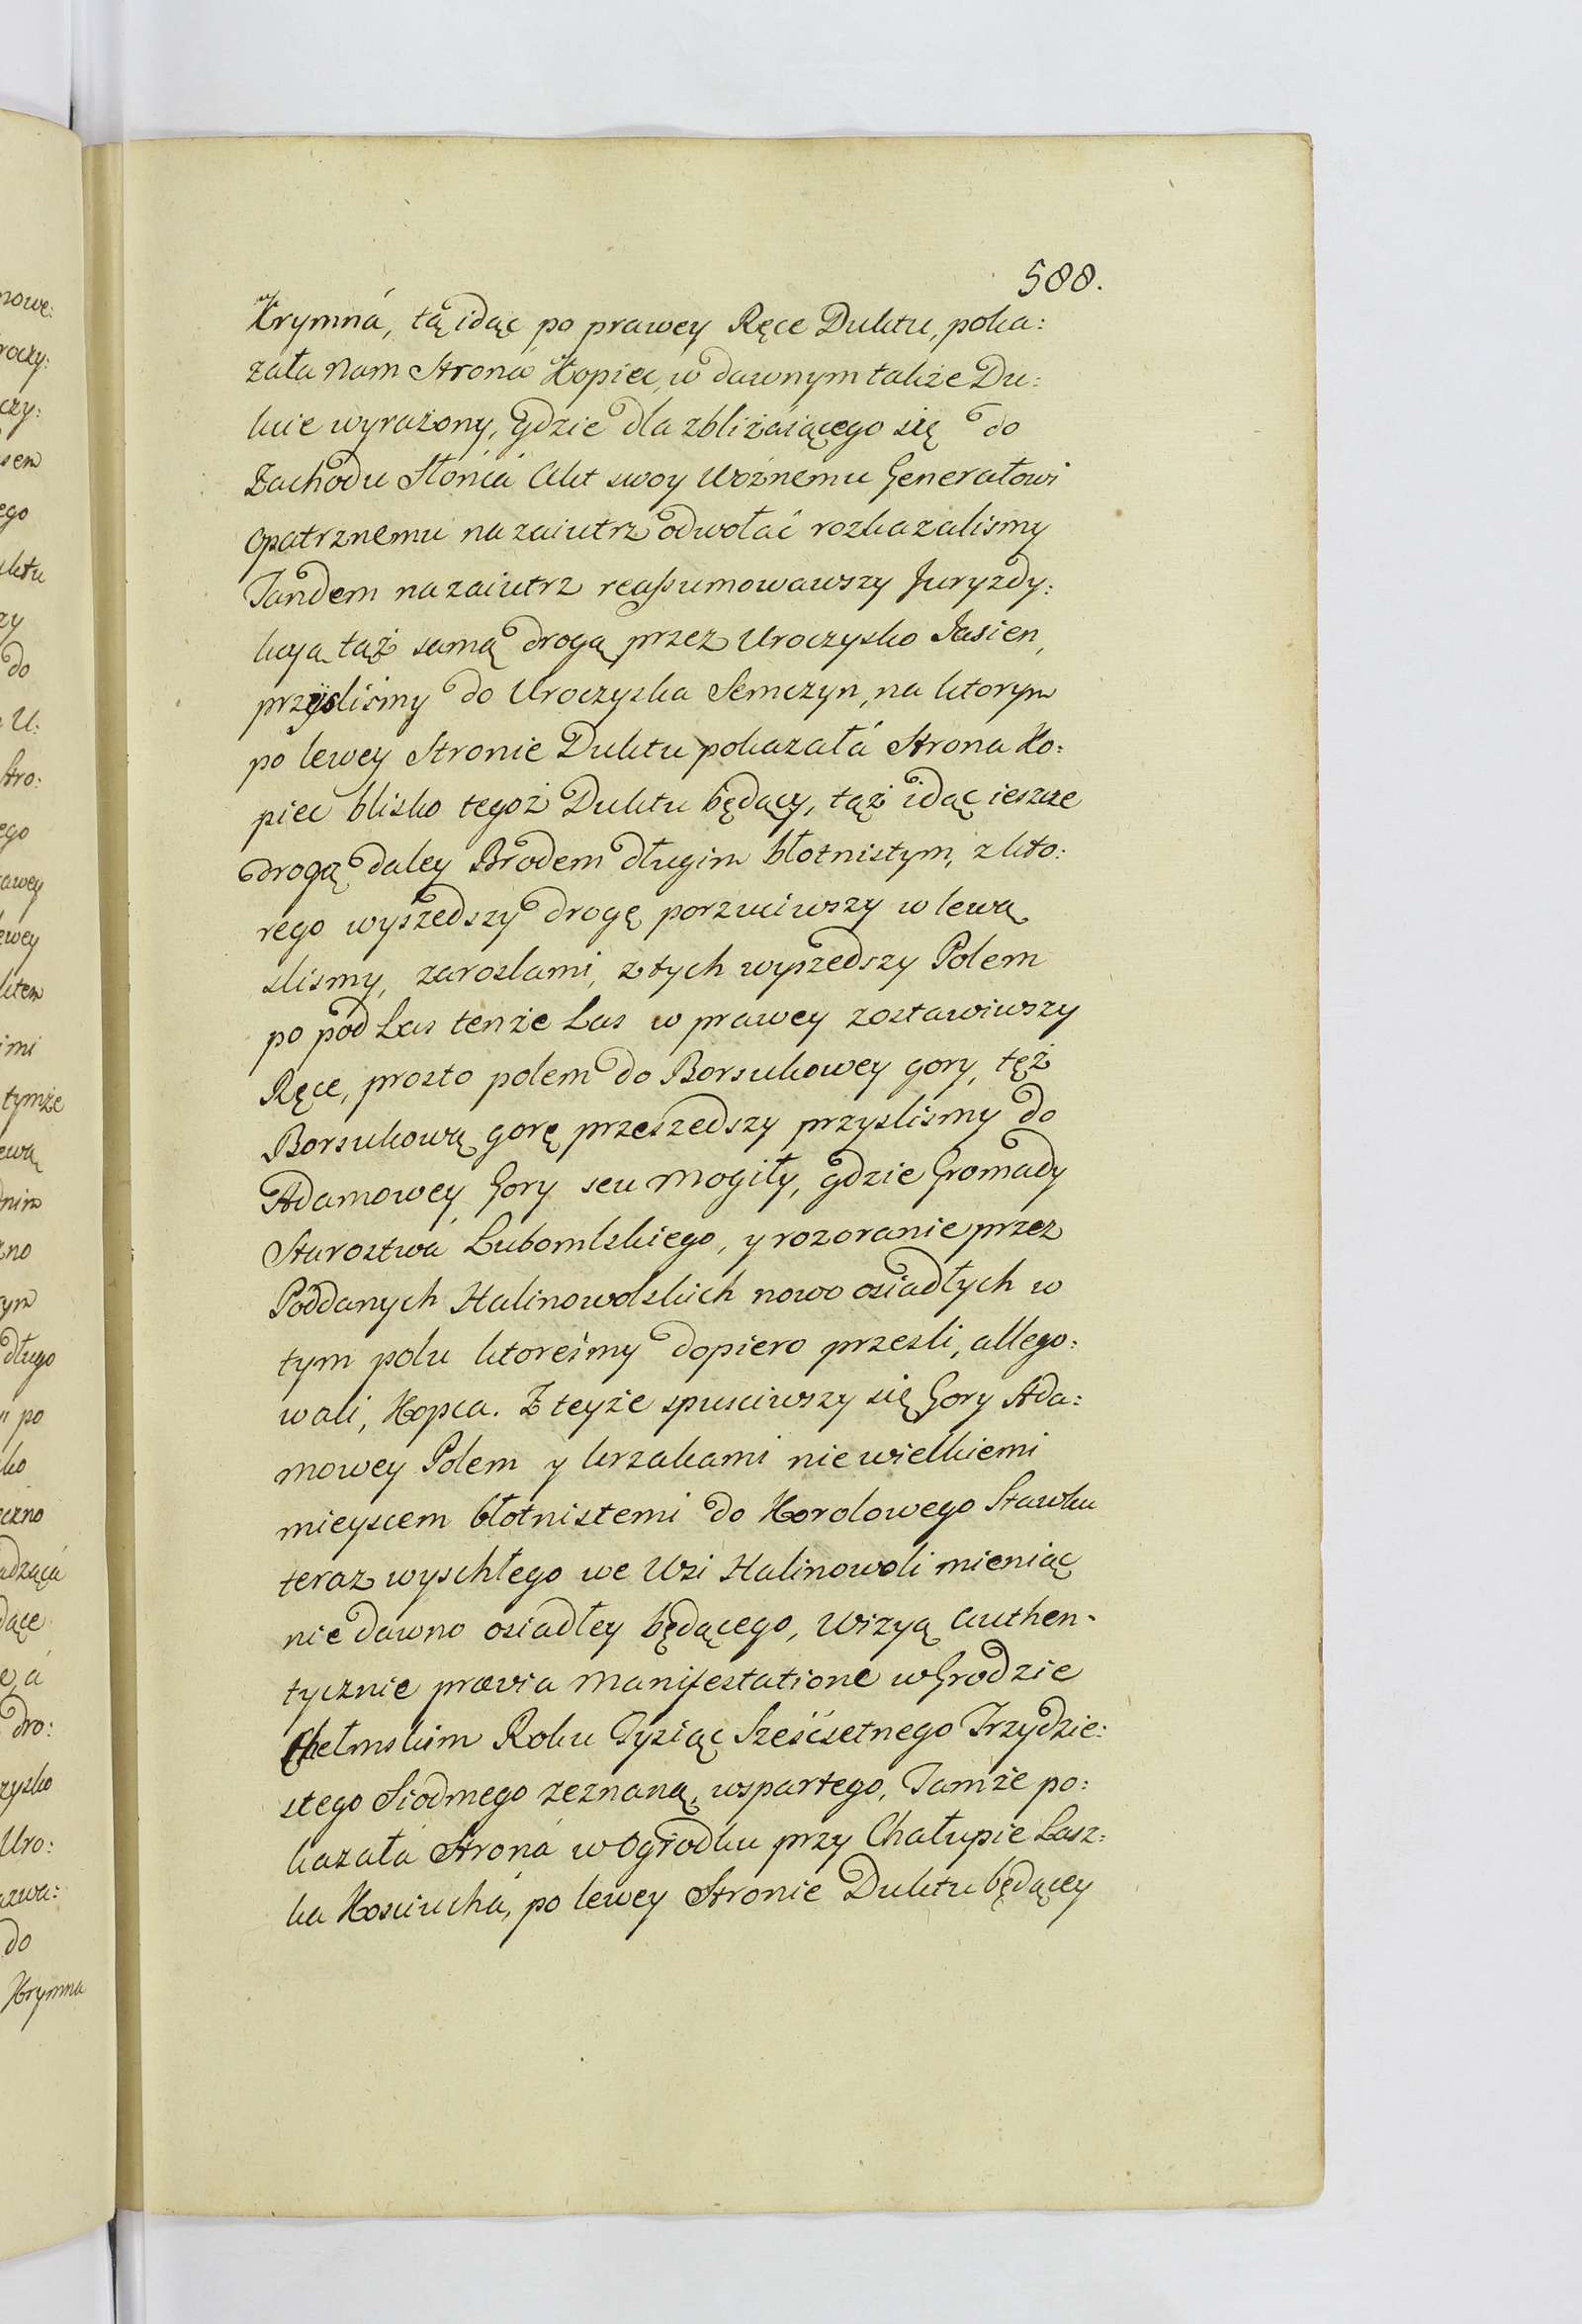 588.
Krymná, tą idąc po prawey Ręce Duktu, poka:
zała nam Strona Kopiec, w dawnym także Du:
kcie wyrażony, gdzie dla zbliżaiącego się do
Zachodu Słońca Akt swoy Woźnemu Generałowi
opatrznemu na zaiutrz odwołać rozkazalismy
Tandem na zaiutrz reassumowawszy Juryzdy:
kcyą tąż samą drogą przez Uroczysko Jasien,
przyslismy do Uroczyska Semczyn, na ktorym
po lewey Stronie Duktu pokazałá Strona Ko:
piec blisko tegoż Duktu będący, tąż idąc ieszcze
drogą daley Brodem długim błotnistym, z kto:
rego wyszedszy drogę porzuciwszy w lewą
slismy, zaroslami, z tych wyszedszy Polem
po pod Las tenże Las w prawey zostawiwszy
Ręce, prosto polem do Borsukowey gory, tęż
Borsukową gorę przeszedszy przyslismy do
Adamowey Gory seu Mogiły, gdzie Gromady
Starostwa Lubomlskiego, y rozoranie przez
Poddanych Kalinowolskich nowo osiadłych w
tym polu ktoreśmy dopiero przesli, allego:
wali, Kopca. Z teyże spusciwszy się Gory Ada:
mowey Polem y krzakami nie wielkiemi
mieyscem błotnistemi do Korolowego Stawku
teraz wyschłego we Wsi Kalinowoli mieniąc
nie dawno osiadłey będącego, Wizyą authen-
tycznie prævia Manifestatione w Grodzie
Chełmskim Roku Tysiąc Sześćsetnego Trzydzie:
stego Siodmego zeznaną, wspartego, Tamże po:
kazałá Stroná w Ogrodku przy Chałupie Lasz:
ka Kosciuchá, po lewey Stronie Duktu będącey